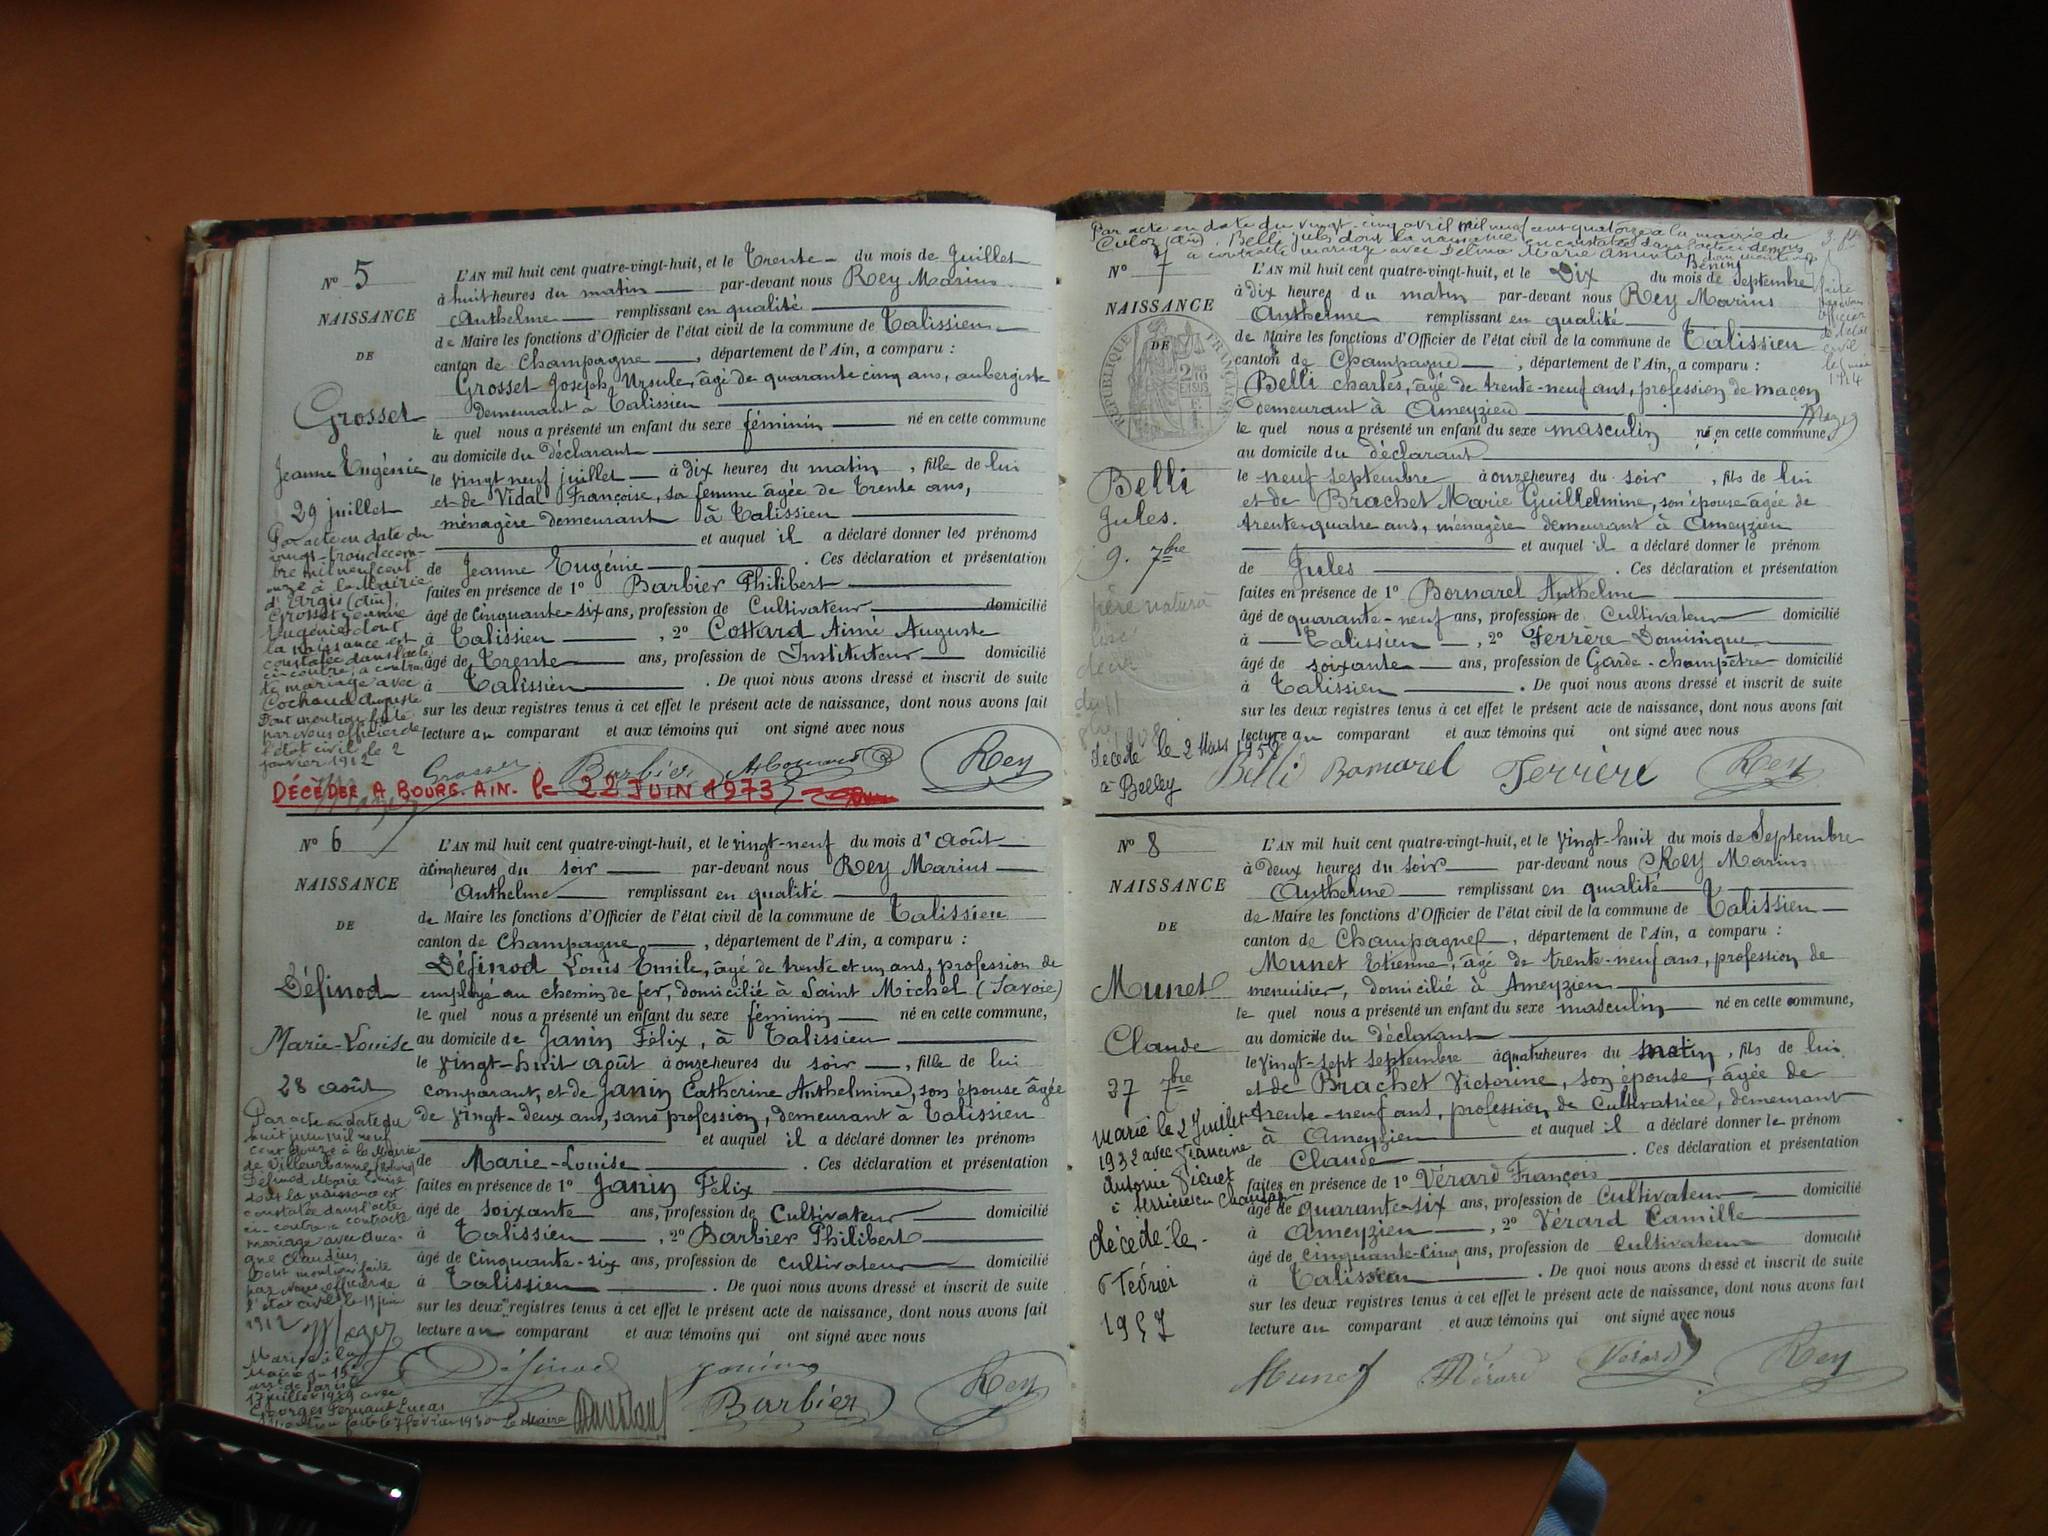 N° 5
NAISSANCE
DE
Grosset
Jeanne Eugénie
29 juillet
Par acte en date du
vingt-trois décem-
bre mil neuf cent
onze à la Mairie
d'Argis (Ain)
Grosset Jeanne
Eugénie dont
la naissance est
constatée dans l'acte
ci-contre, a contrac-
té mariage avec
Cochaud Auguste
Dont mention faite
par Nous officier de
l'état civil le 2
janvier 1912
L'AN mil huit cent quatre-vingt-huit, et le Trente du mois de Juillet
à huit heures du matin par-devant nous Rey Marius
Anthelme remplissant en qualité
de Maire les fonctions d'Officier de l'état civil de la commune de Talissieu
canton de Champagne, département de l'Ain, a comparu :
Grosset Joseph Ursule, âgé de quarante cinq ans, aubergiste
demeurant à Talissieu
le quel nous a présenté un enfant du sexe féminin né en cette commune
au domicile du déclarant
le vingt neuf juillet à dix heures du matin, fille de lui
et de Vidal Françoise, sa femme âgée de trente ans,
ménagère demeurant à Talissieu
et auquel il a déclaré donner les prénoms
de Jeanne Eugénie. Ces déclaration et présentation
faites en présence de 1° Barbier Philibert
âgé de cinquante-six ans, profession de Cultivateur domicilié
à Talissieu, 2° Costard Aimé Auguste
âgé de Trente ans, profession de Instituteur domicilié
à Talissieu. De quoi nous avons dressé et inscrit de suite
sur les deux registres tenus à cet effet le présent acte de naissance, dont nous avons fait
lecture au comparant et aux témoins qui ont signé avec nous
Grosset Barbier Rey
DÉCÉDÉE A BOURG. AIN. le 22 JUIN 1973
N° 6
NAISSANCE
DE
Définod
Marie-Louise
28 août
Par acte en date du
huit juin mil neuf
cent douze à la Mairie
de Villeurbanne (Rhône)
Définod Marie Louise
dont la naissance est
constatée dans l'acte
ci-contre a contracté
mariage avec
Claudius
Dont mention faite
par Nous officier de
l'état civil le 19 juin
1912
Mariée à la
Mairie du 15e
arr. de Paris le
17 juillet 1929 avec
Georges Fernand Lucas
Mention faite le 7 février 1930 Le Maire
L'AN mil huit cent quatre-vingt-huit, et le vingt-neuf du mois d'août
à cinq heures du soir par-devant nous Rey Marius
Anthelme remplissant en qualité
de Maire les fonctions d'Officier de l'état civil de la commune de Talissieu
canton de Champagne, département de l'Ain, a comparu :
Définod Louis Emile, âgé de trente et un ans, profession de
employé au chemin de fer, domicilié à Saint Michel (Savoie)
le quel nous a présenté un enfant du sexe féminin né en cette commune,
au domicile de Janin Félix, à Talissieu
le vingt-huit août à onze heures du soir, fille de lui
comparant, et de Janin Catherine Anthelmine, son épouse âgée
de vingt-deux ans, sans profession, demeurant à Talissieu
et auquel il a déclaré donner les prénoms
de Marie-Louise. Ces déclaration et présentation
faites en présence de 1° Janin Félix
âgé de soixante ans, profession de Cultivateur domicilié
à Talissieu, 2° Barbier Philibert
âgé de cinquante-six ans, profession de cultivateur domicilié
à Talissieu. De quoi nous avons dressé et inscrit de suite
sur les deux registres tenus à cet effet le présent acte de naissance, dont nous avons fait
lecture au comparant et aux témoins qui ont signé avec nous
Définod Janin Barbier Rey
Par acte en date du vingt-cinq avril mil neuf cent quatorze à la mairie de
Culoz (Ain). Belli Jules dont la naissance est constatée dans l'acte ci-dessous
a contracté mariage avec Félina Marie dont mention
faite
par nous
officier
de l'état
civil
le mai
1914
N° 7
NAISSANCE
DE
RÉPUBLIQUE FRANÇAISE
Belli
Jules.
9. 7bre
décédé le 2 Mars 1958
à Belley
L'AN mil huit cent quatre-vingt-huit, et le Dix du mois de Septembre
à dix heures du matin par-devant nous Rey Marius
Anthelme remplissant en qualité
de Maire les fonctions d'Officier de l'état civil de la commune de Talissieu
canton de Champagne, département de l'Ain, a comparu :
Belli charles, âgé de trente-neuf ans, profession de maçon
demeurant à Ameyzieu
le quel nous a présenté un enfant du sexe masculin né en cette commune,
au domicile du déclarant
le neuf septembre à onze heures du soir, fils de lui
et de Brachet Marie Guillelmine, son épouse âgée de
trente-quatre ans, ménagère demeurant à Ameyzieu
et auquel il a déclaré donner le prénom
de Jules. Ces déclaration et présentation
faites en présence de 1° Bornarel Anthelme
âgé de quarante-neuf ans, profession de Cultivateur domicilié
à Talissieu, 2° Ferrère Dominique
âgé de soixante ans, profession de Garde-champêtre domicilié
à Talissieu. De quoi nous avons dressé et inscrit de suite
sur les deux registres tenus à cet effet le présent acte de naissance, dont nous avons fait
lecture au comparant et aux témoins qui ont signé avec nous
Belli Bornarel Ferrère Rey
N° 8
NAISSANCE
DE
Munet
Claude
27 7bre
marié le 2 Juillet
1932 avec Francine
Antonie Picut
décédé le
6 Février
1957
L'AN mil huit cent quatre-vingt-huit, et le vingt-huit du mois de Septembre
à deux heures du soir par-devant nous Rey Marius
Anthelme remplissant en qualité
de Maire les fonctions d'Officier de l'état civil de la commune de Talissieu
canton de Champagne, département de l'Ain, a comparu :
Munet Etienne, âgé de trente-neuf ans, profession de
menuisier, domicilié à Ameyzieu
le quel nous a présenté un enfant du sexe masculin né en cette commune,
au domicile du déclarant
le vingt-sept septembre à quatre heures du matin, fils de lui
et de Brachet Victorine, son épouse, âgée de
trente-neuf ans, profession de Cultivatrice, demeurant
à Ameyzieu et auquel il a déclaré donner le prénom
de Claude. Ces déclaration et présentation
faites en présence de 1° Vérard François
âgé de quarante-six ans, profession de Cultivateur domicilié
à Ameyzieu, 2° Vérard Camille
âgé de cinquante-cinq ans, profession de Cultivateur domicilié
à Talissieu. De quoi nous avons dressé et inscrit de suite
sur les deux registres tenus à cet effet le présent acte de naissance, dont nous avons fait
lecture au comparant et aux témoins qui ont signé avec nous
Munet Vérard Verard Rey